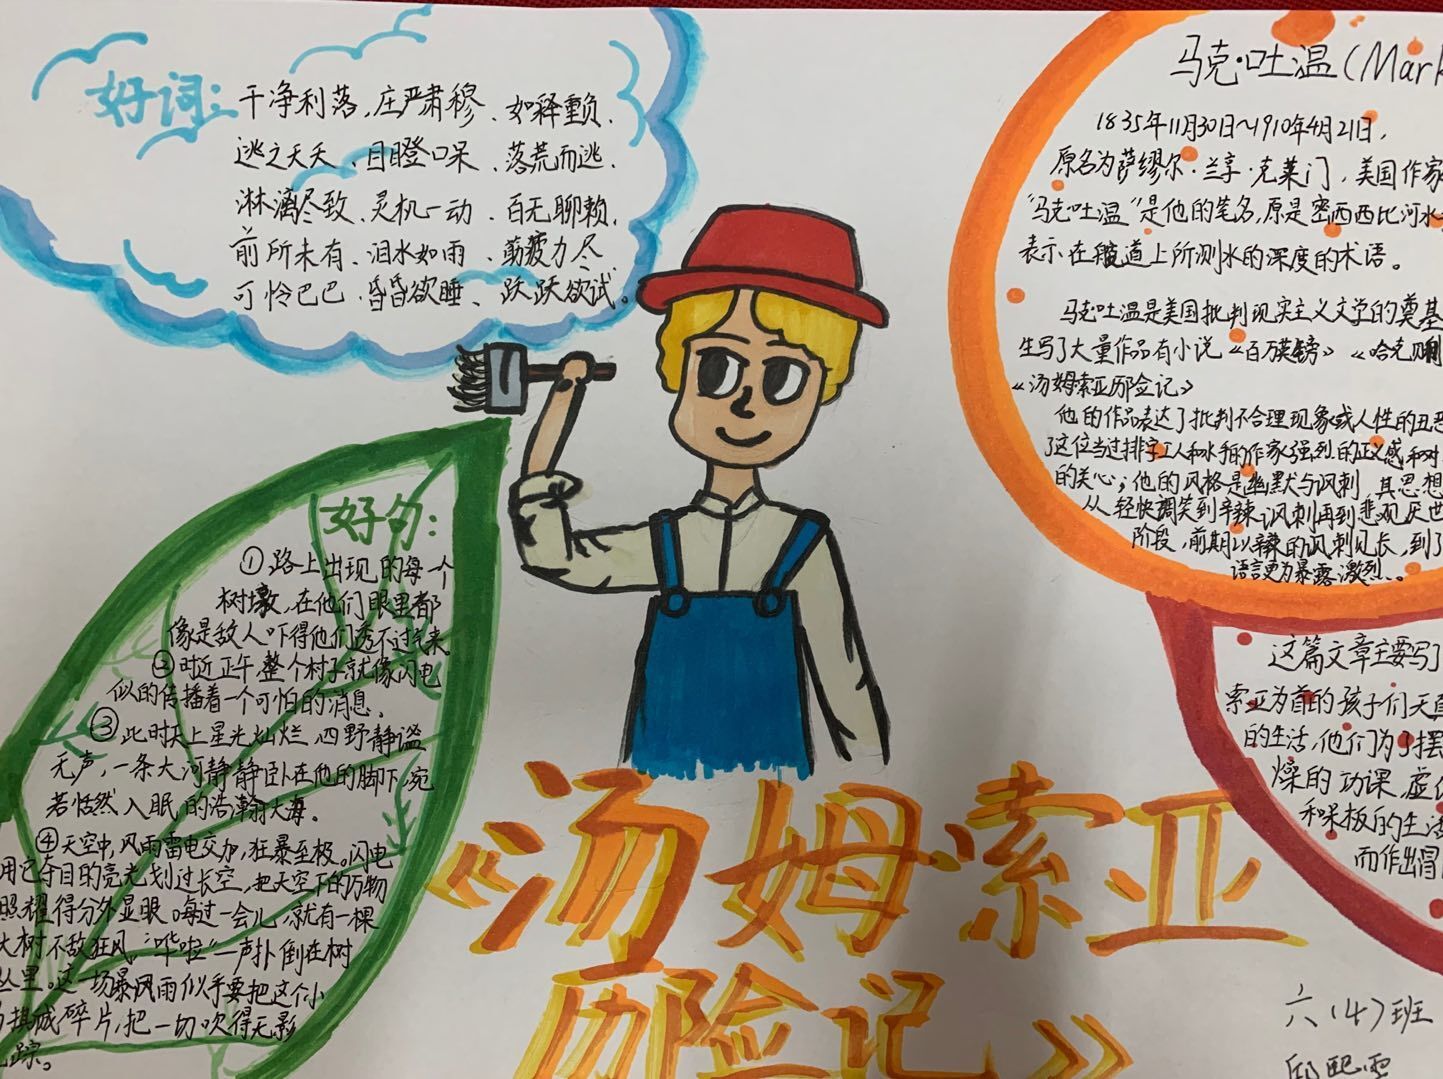 好词:
干净利落、庄严肃穆、如释重负、
逃之夭夭、目瞪口呆、落荒而逃、
淋漓尽致、灵机一动、百无聊赖、
前所未有、泪水如雨、筋疲力尽
可怜巴巴、昏昏欲睡、跃跃欲试。
好句:
①路上出现的每一个
树墩,在他们眼里都
像是敌人吓得他们透不过气来。
②时近正午整个村子就像闪电
似的传播着一个可怕的消息。
③此时天上星光灿烂,四野静谧
无声,一条大河静静卧在他的脚下,宛
若恬然入眠的浩瀚大海。
④天空中,风雨雷电交加,狂暴至极。闪电
用它夺目的亮光划过长空,把天空下的万物
照耀得分外显眼。每过一会儿,就有一棵
大树不敌狂风,“哗啦”一声扑倒在树
丛里。这一场暴风雨似乎要把这个小
撕成碎片,把一切吹得无影
踪。
马克·吐温(Mark
1835年11月30日~1910年4月21日,
原名为萨缪尔·兰亨·克莱门,美国作家
“马克吐温”是他的笔名,原是密西西比河水
表示在航道上所测水的深度的术语。
马克吐温是美国批判现实主义文学的奠基
生写了大量作品有小说《百万英镑》《哈克贝利
《汤姆索亚历险记》
他的作品表达了批判不合理现象或人性的丑恶
了这位当过排字工人和水手的作家强烈的正义感和对
的关心;他的风格是幽默与讽刺,其思想
从轻快调笑到辛辣讽刺再到悲观厌世
阶段,前期以辛辣的讽刺见长,到了
语言更为暴露激烈。
这篇文章主要写了
索亚为首的孩子们天真
的生活,他们为了摆
燥的功课,虚伪
和呆板的生活
而作出冒
《汤姆索亚
历险记》
六(4)班